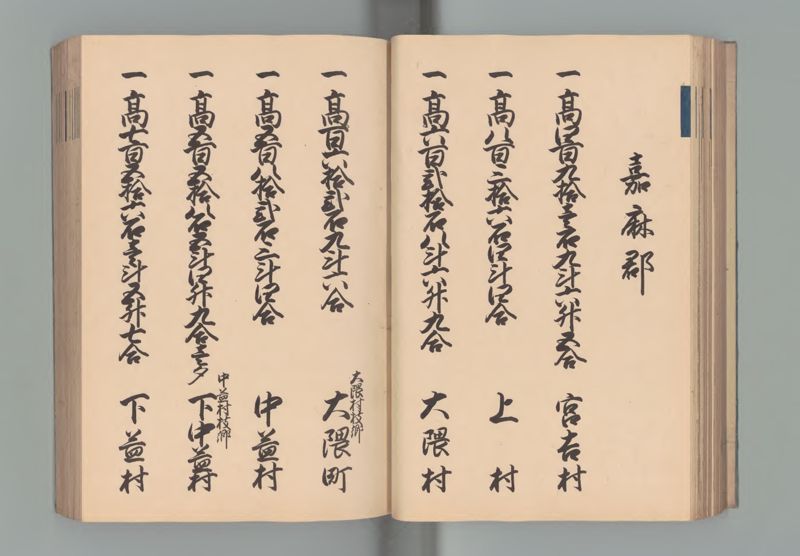 嘉麻郡
一高四百九拾壱石九斗六升五合 宮吉村
一高八百三拾六石四斗四合 上村
一高六百弐拾石八斗六升九合 大隈村
一高百六拾弐石九斗六合 大隈村枝郷 大隈町
一高五百八拾弐石三斗四合 中益村
一高五百五拾八石五斗四升九合壱夕 中益村枝郷 下中益村
一高七百五拾六石壱斗五升七合 下益村